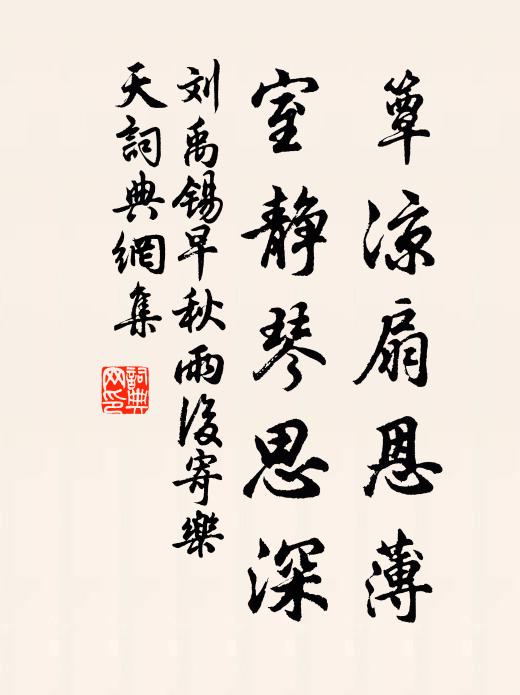 簟凉扇恩薄
室静琴思深
刘禹锡早秋雨后寄樂
天詞典網集
詞典
网印